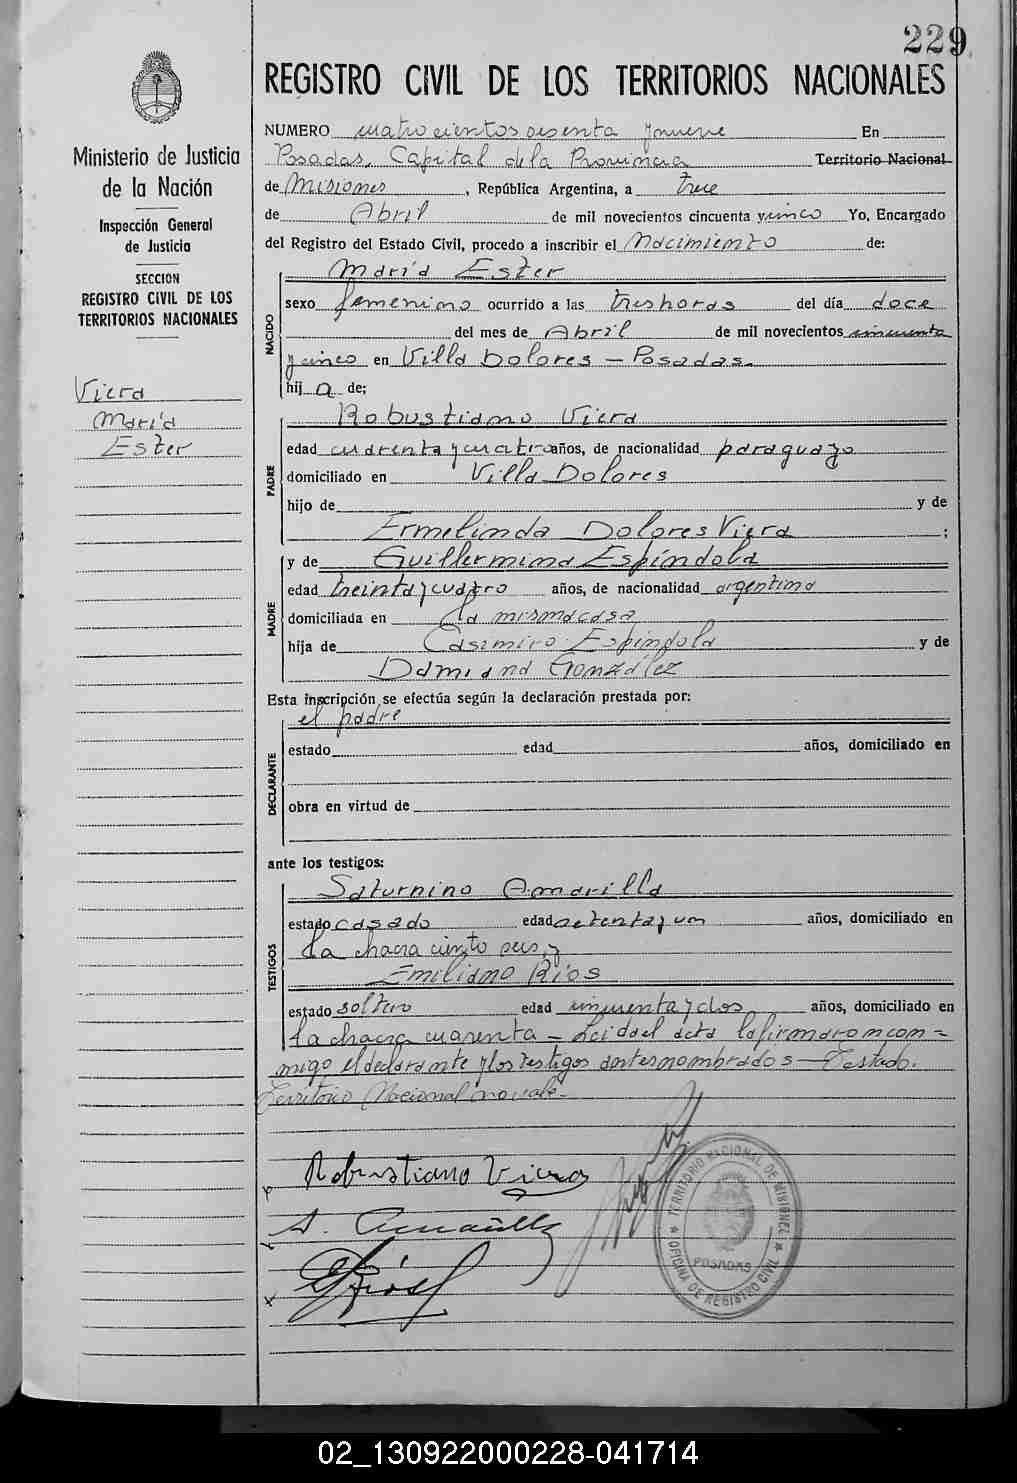 229
REGISTRO CIVIL DE LOS TERRITORIOS NACIONALES
Ministerio de Justicia
de la Nación
Inspección General
de Justicia
SECCION
REGISTRO CIVIL DE LOS
TERRITORIOS NACIONALES
Viera
María
Ester
NUMERO cuatrocientos sesenta y nueve En
Posadas, Capital de la Provincia Territorio Nacional
de Misiones, República Argentina, a trece
de Abril de mil novecientos cincuenta y cinco Yo, Encargado
del Registro del Estado Civil, procedo a inscribir el Nacimiento de:
NACIDO
María Ester
sexo femenino ocurrido a las tres horas del día doce
del mes de Abril de mil novecientos cincuenta
y cinco en Villa Dolores - Posadas.
hij a de;
PADRE
Robustiano Viera
edad cuarenta y cuatro años, de nacionalidad paraguayo
domiciliado en Villa Dolores
hijo de y de
Ermelinda Dolores Viera ;
MADRE
y de Guillermina Espíndola
edad treinta y cuatro años, de nacionalidad argentina
domiciliada en la misma casa
hija de Casimiro Espíndola y de
Damiana González
Esta inscripción se efectúa según la declaración prestada por:
DECLARANTE
el padre
estado edad años, domiciliado en
obra en virtud de
ante los testigos:
TESTIGOS
Saturnino Amarilla
estado casado edad setenta y un años, domiciliado en
la chacra ciento seis, y
Emiliano Ríos
estado soltero edad cincuenta y dos años, domiciliado en
la chacra cuarenta - Leida el acta la firmaron con-
migo el declarante y los testigos antes nombrados - Testado:
Territorio Nacional no vale.-
Robustiano Viera
S. Amarilla
E Ríos
TERRITORIO NACIONAL DE MISIONES
POSADAS
OFICINA DE REGISTRO CIVIL
02_130922000228-041714